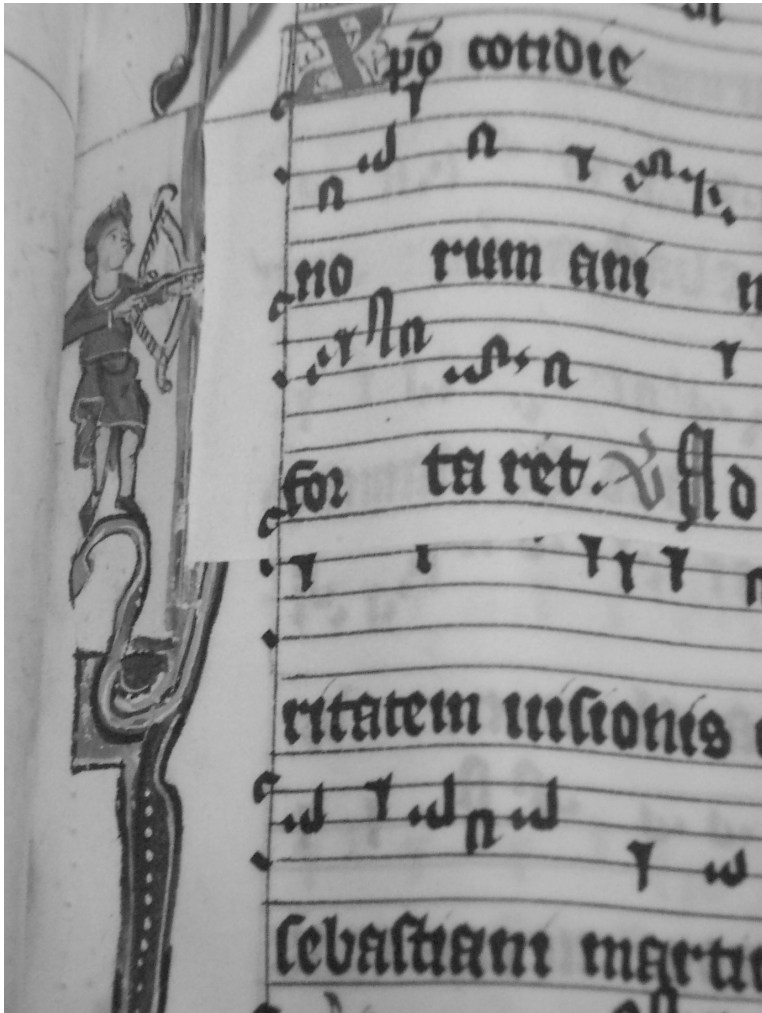 Xpō cotidie
no rum ani
for ta ret. Ad
ritatem uisionis
sebastiani marti